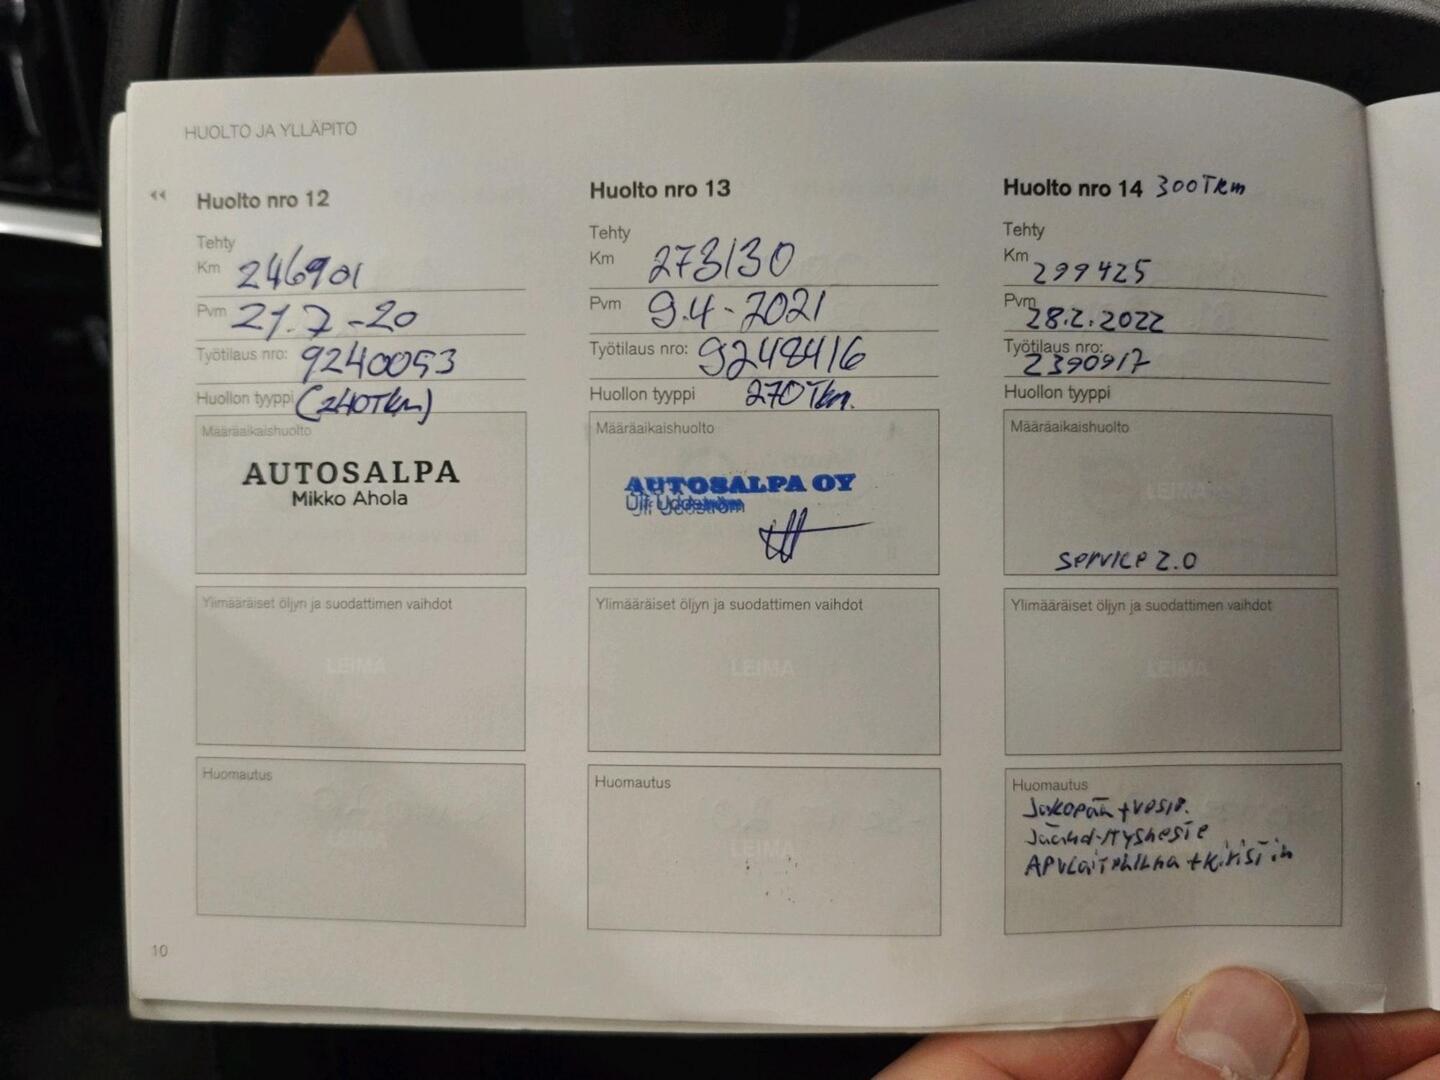 HUOLTO JA YLLÄPITO
Huolto nro 12
Tehty
Km 246901
Pvm 21.7-20
Työtilaus nro: 9240053
Huollon tyyppi (240Tkm)
Määräaikaishuolto
AUTOSALPA
Mikko Ahola
Ylimääräiset öljyn ja suodattimen vaihdot
LEIMA
Huomautus
10
Huolto nro 13
Tehty
Km 273130
Pvm 9.4-2021
Työtilaus nro: 9248416
Huollon tyyppi 270Tkm.
Määräaikaishuolto
AUTOSALPA OY
Ulf Uddström
Ylimääräiset öljyn ja suodattimen vaihdot
LEIMA
Huomautus
LEIMA
Huolto nro 14 300Tkm
Tehty
Km 299425
Pvm 28.2.2022
Työtilaus nro: 2390917
Huollon tyyppi
Määräaikaishuolto
LEIMA
service 2.0
Ylimääräiset öljyn ja suodattimen vaihdot
LEIMA
Huomautus
Jakopää + vesip.
Jäähdytysneste
APVLaitehihna + kiristin